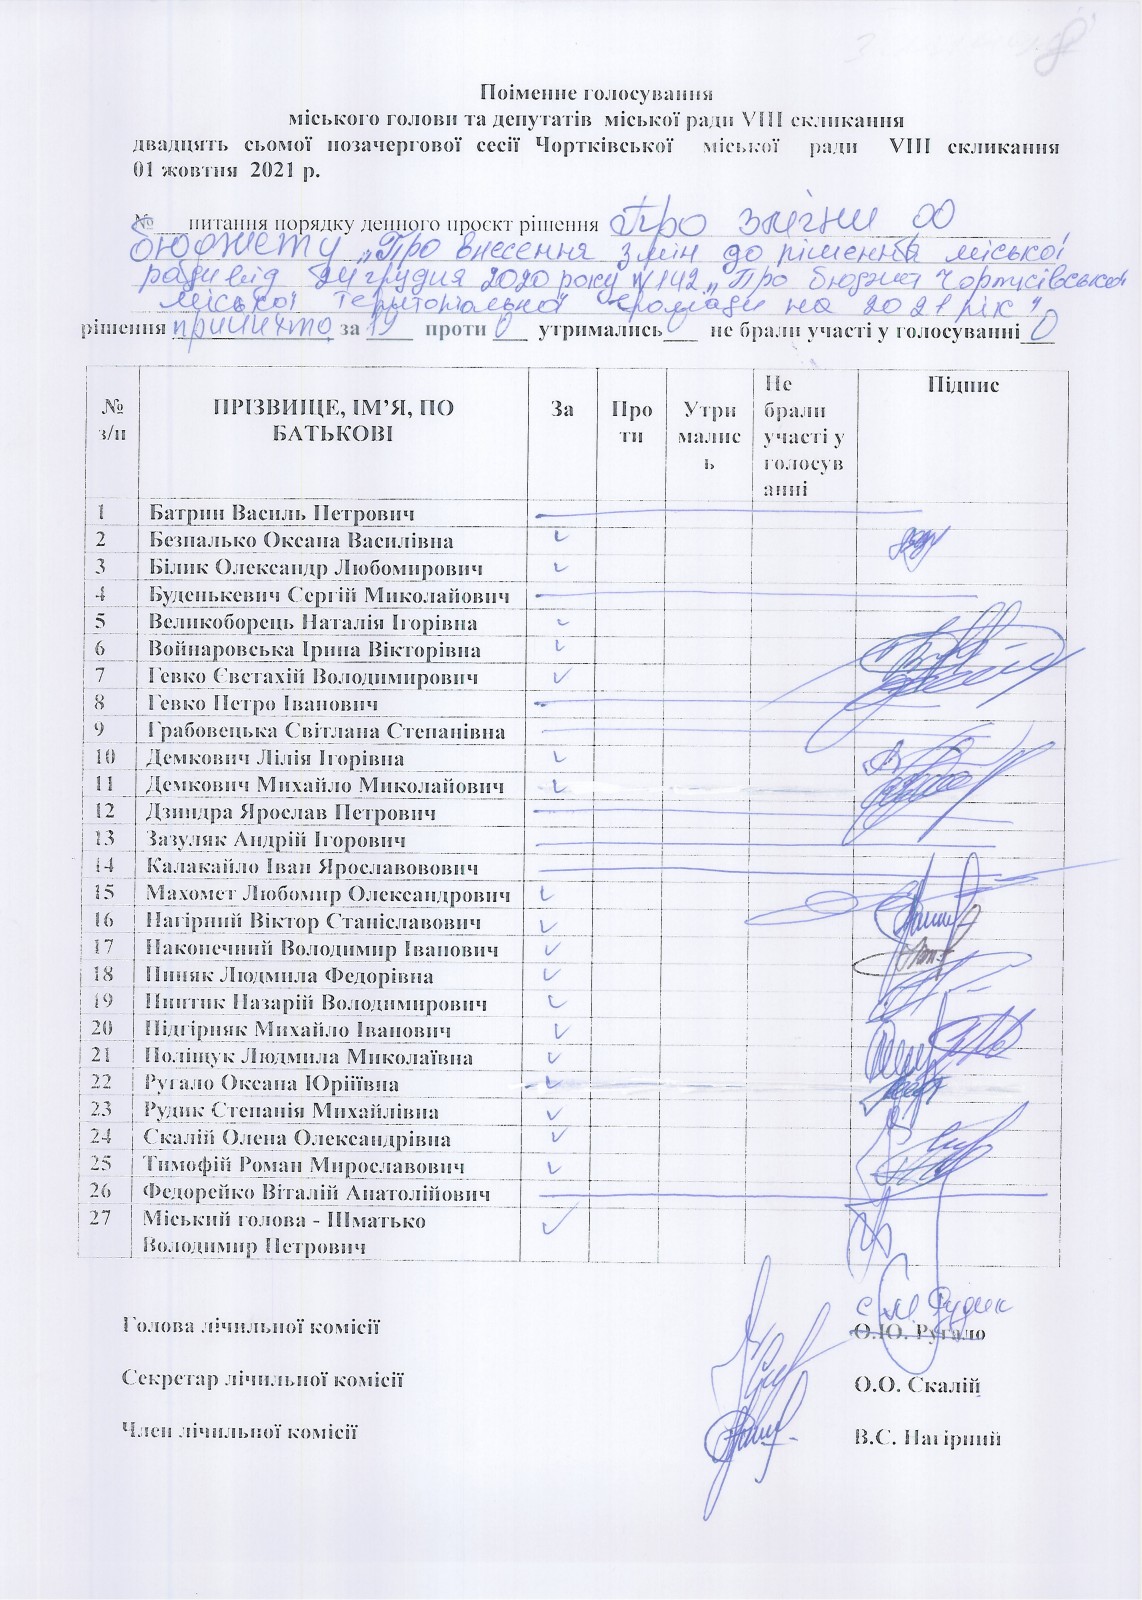 Поіменне голосування
міського голови та депутатів міської ради VIII скликання
двадцять сьомої позачергової сесії Чортківської міської ради VIII скликання
01 жовтня 2021 р.
№___питання порядку денного проєкт рішення Про зміни до
бюджету „Про внесення змін до рішення міської
ради від 24 грудня 2020 року №1142 „Про бюджет Чортківської
міської територіальної громади на 2021 рік"
рішення прийнято за 19 проти 0 утримались 0 не брали участі у голосуванні 0
№ з/п ПРІЗВИЩЕ, ІМ’Я, ПО БАТЬКОВІ За Про ти Утри малис ь Не брали участі у голосув анні Підпис
1 Батрин Василь Петрович
2 Безпалько Оксана Василівна
3 Білик Олександр Любомирович
4 Буденькевич Сергій Миколайович
5 Великоборець Наталія Ігорівна
6 Войнаровська Ірина Вікторівна
7 Гевко Євстахій Володимирович
8 Гевко Петро Іванович
9 Грабовецька Світлана Степанівна
10 Демкович Лілія Ігорівна
11 Демкович Михайло Миколайович
12 Дзиндра Ярослав Петрович
13 Зазуляк Андрій Ігорович
14 Калакайло Іван Ярославовович
15 Махомет Любомир Олександрович
16 Нагірний Віктор Станіславович
17 Наконечний Володимир Іванович
18 Пиняк Людмила Федорівна
19 Пинтик Назарій Володимирович
20 Підгірняк Михайло Іванович
21 Поліщук Людмила Миколаївна
22 Ругало Оксана Юріїівна
23 Рудик Степанія Михайлівна
24 Скалій Олена Олександрівна
25 Тимофій Роман Мирославович
26 Федорейко Віталій Анатолійович
27 Міський голова - Шматько
Володимир Петрович
С.М. Рудик
Голова лічильної комісії О.Ю. Ругало
Секретар лічильної комісії О.О. Скалій
Член лічильної комісії В.С. Нагірний